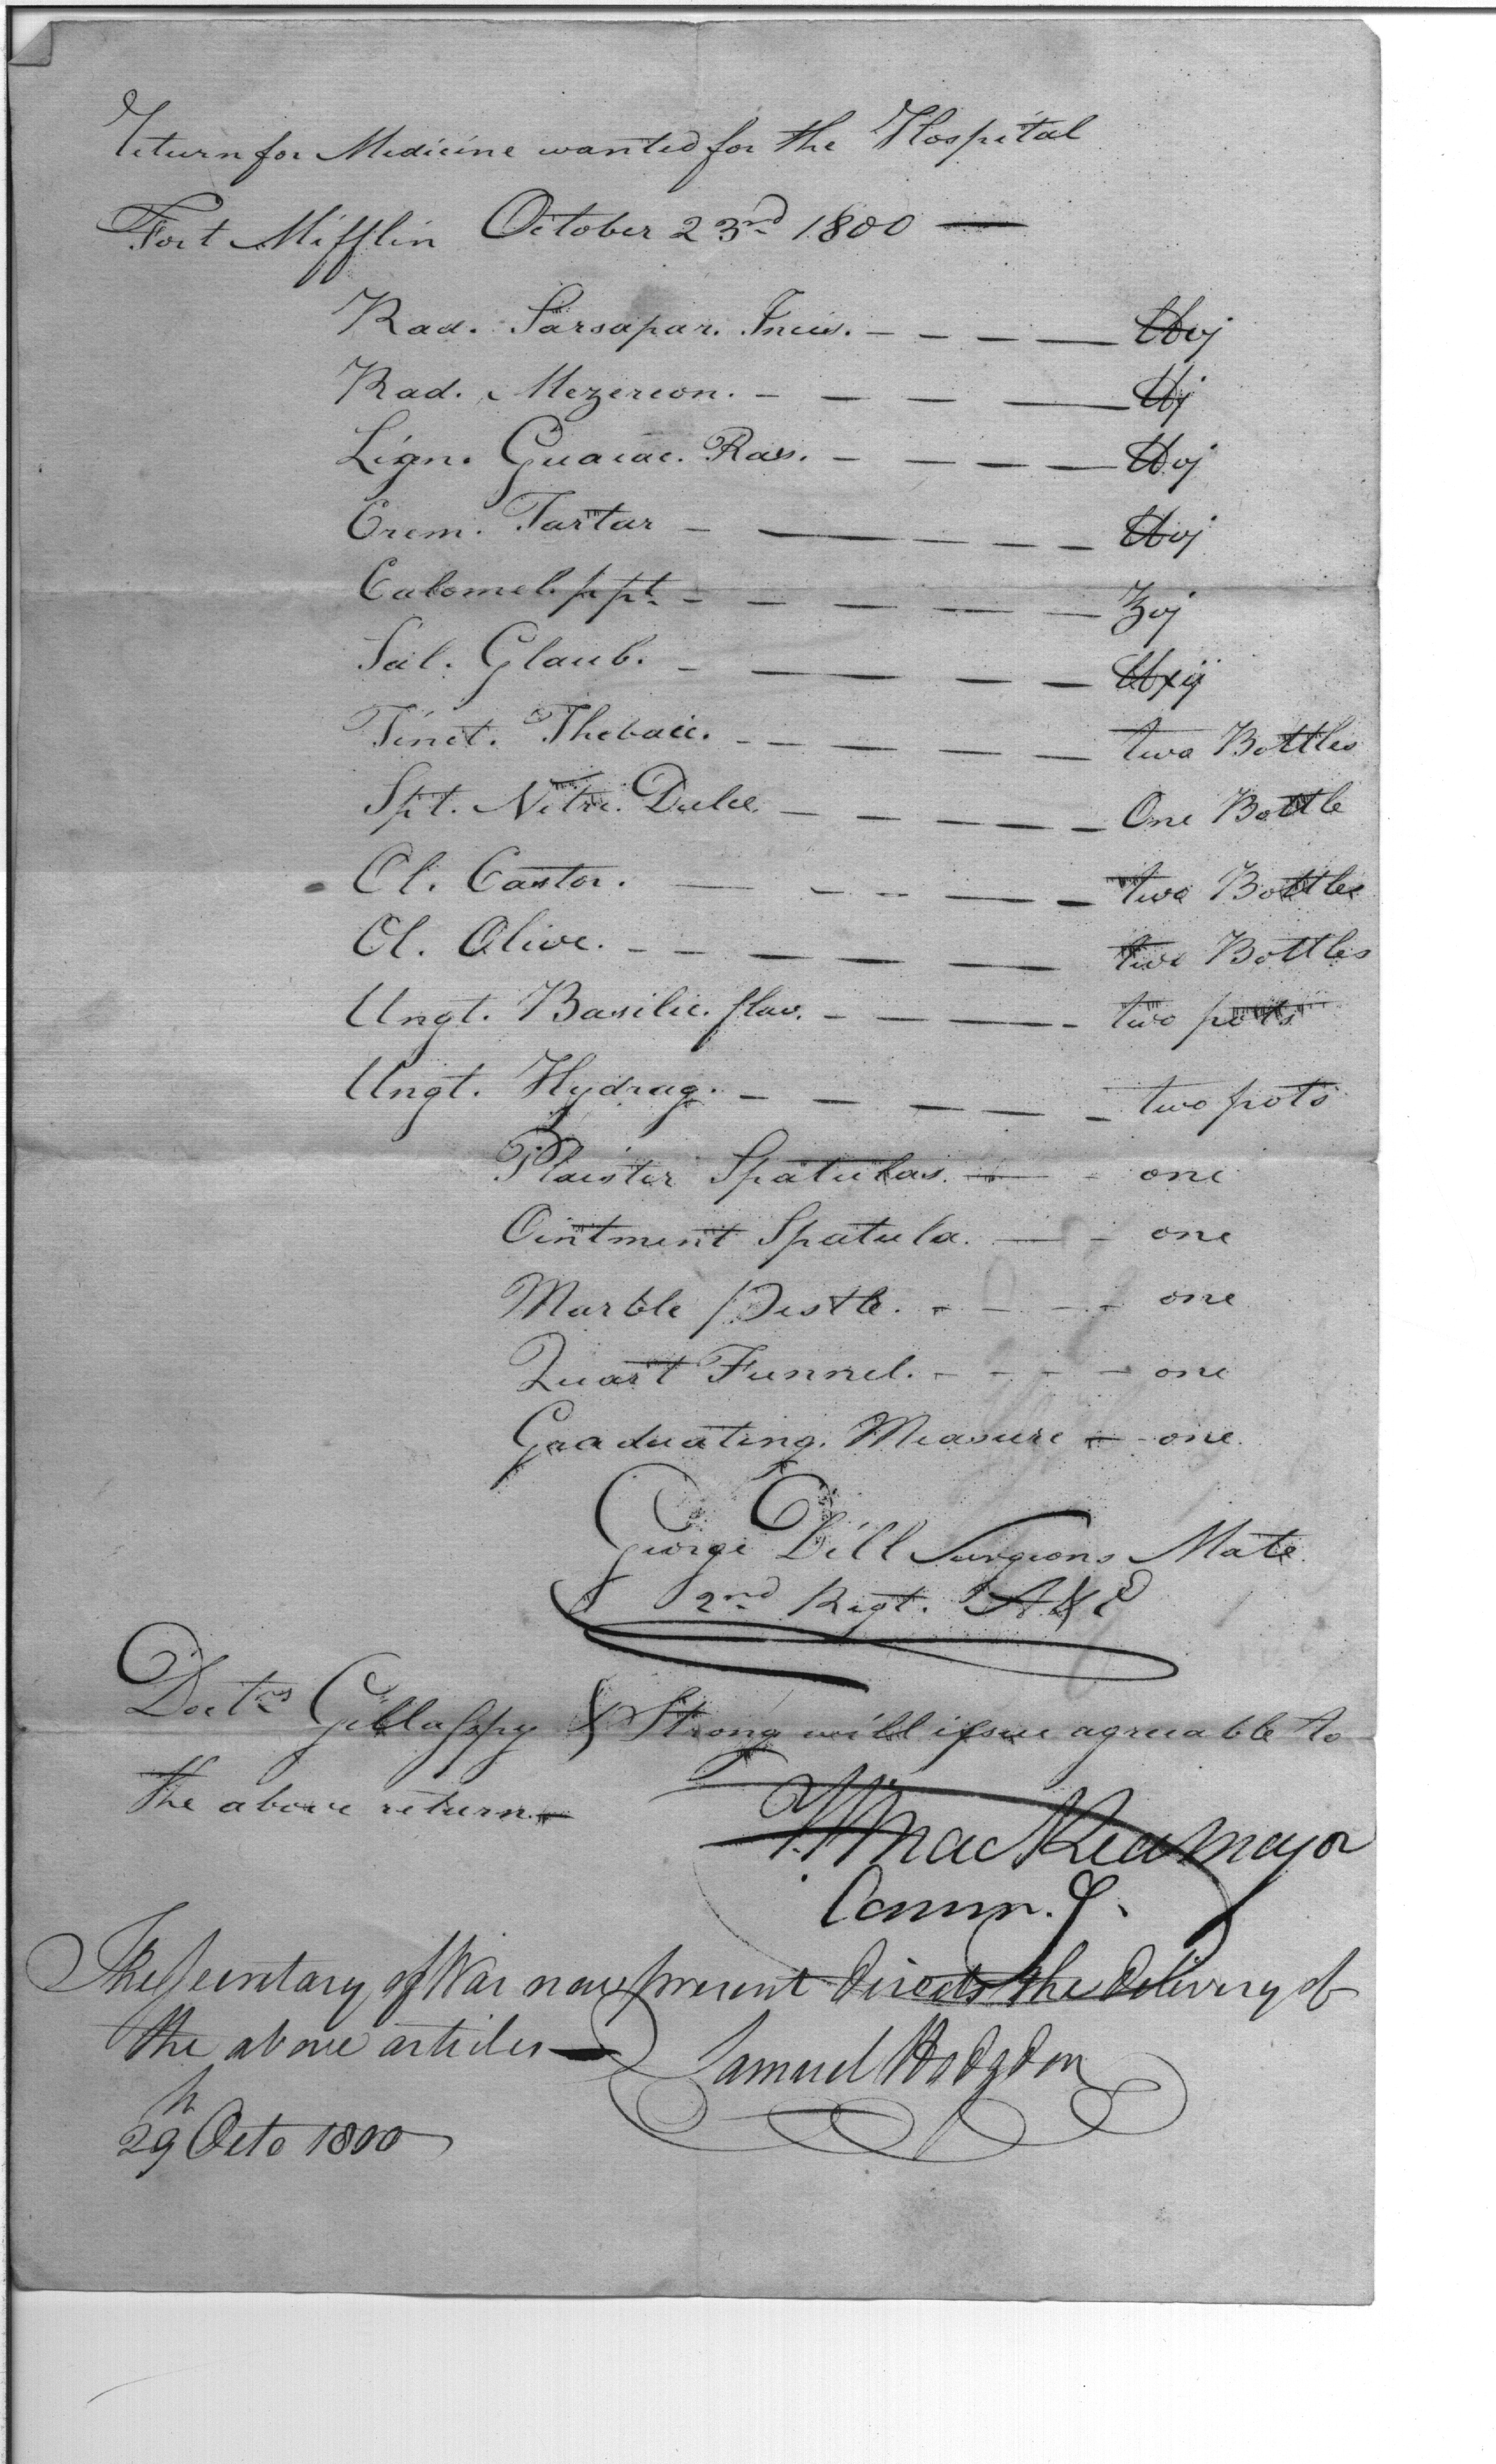 Return for Medicine wanted for the Hospital
Fort Mifflin October 23rd 1800 —
Rad. Sarsapar. Incis. - - - — ℔vj
Rad. Mezereon. - - - — ℔j
Lign. Guaiac. Ras. - - - — ℔vj
Crem. Tartar - — - - - ℔vj
Calomel. ppt. - - - - — ℥vj
Sal. Glaub. - — - - ℔xij
Tinct. Thebaic. - - - - - two Bottles
Spt. Nitri. Dulce. - - - - - One Bottle
Ol. Castor. — - - - - two Bottles
Ol. Olive. - - - - - two Bottles
Ungt. Basilic. flav. - - - - two pots
Ungt. Hydrag. - - - - - two pots
Plaister Spatulas. — - one
Ointment Spatula. — - one
Marble Pestle. - - - - one
Quart Funnel. - - - - one
Graduating. Measure — - one.
George Dill Surgeons Mate.
2nd Regt. A & E
Doctrs Gillaspy & Strong will issue agreeable to
the above return —
Wm MacRea Major
Comm. g.
The Secretary of War now present directs the delivery of
the above articles —
Samuel Hodgdon
29 Octo 1800